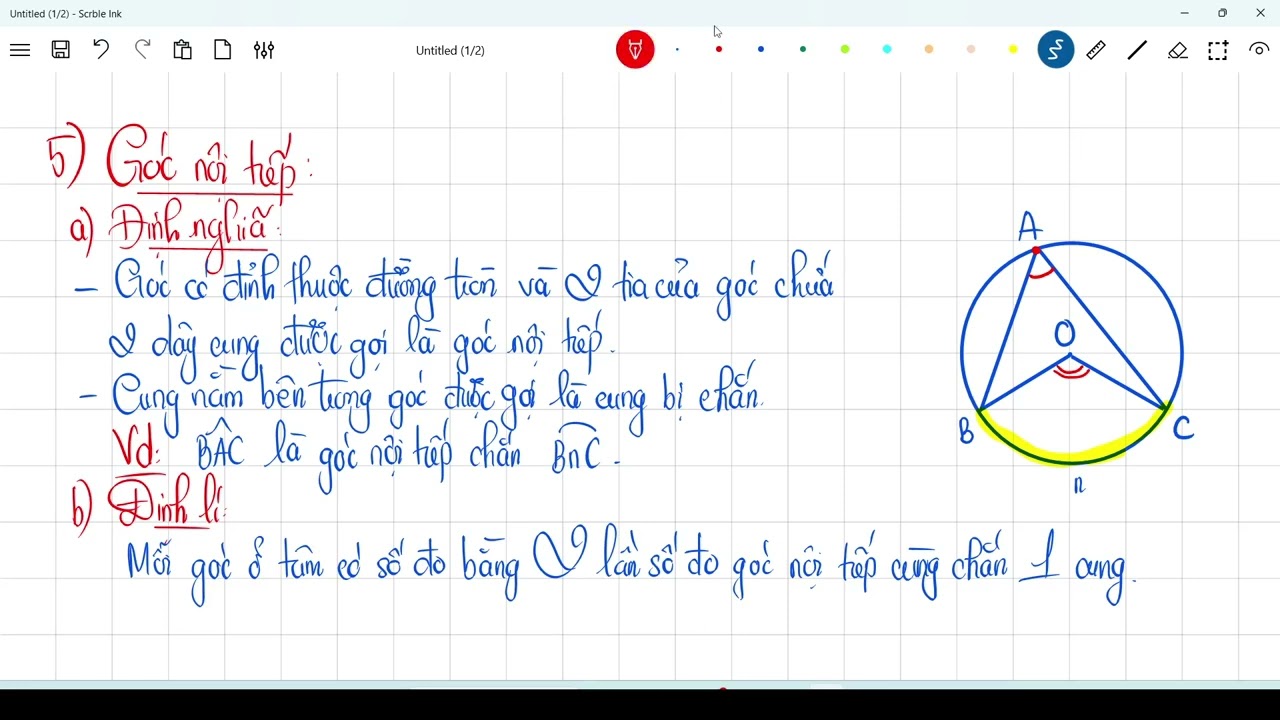 Untitled (1/2) - Scrble Ink
Untitled (1/2)
5) Góc nội tiếp:
a) Định nghĩa:
- Góc có đỉnh thuộc đường tròn và 2 tia của góc chứa
2 dây cung được gọi là góc nội tiếp.
- Cung nằm bên trong góc được gọi là cung bị chắn.
Vd: BAC là góc nội tiếp chắn BnC.
b) Định lí:
Mỗi góc ở tâm có số đo bằng 2 lần số đo góc nội tiếp cùng chắn 1 cung.
A
O
B
C
n